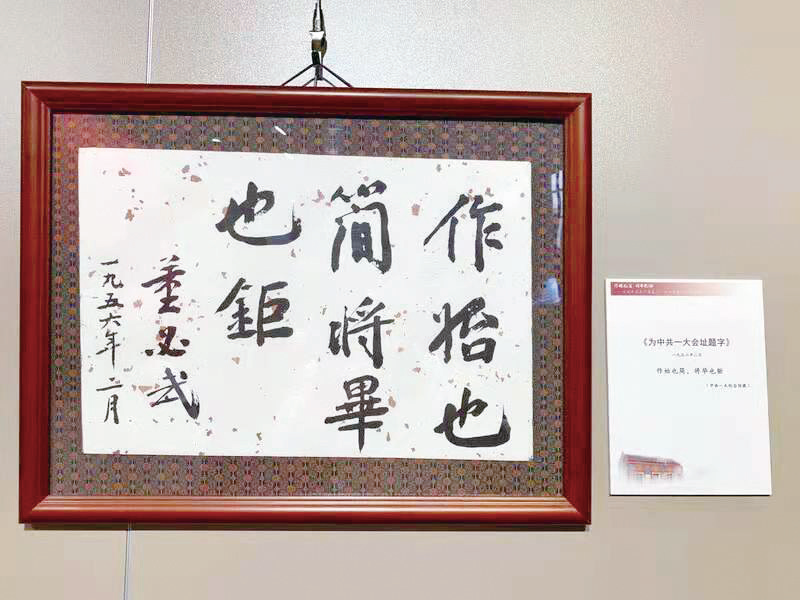 作始也
简将毕
也钜
董必武
一九五六年二月
《为中共一大会址题字》
一九五六年二月
作始也简，将毕也钜